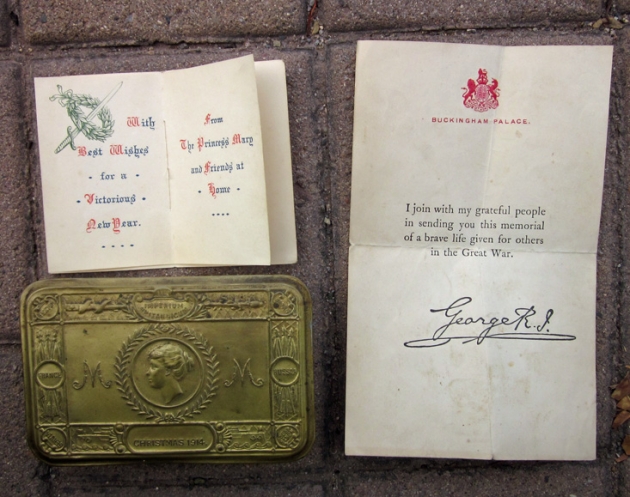 With
Best Wishes
- for a -
- Victorious -
New Year.
- - - -
From
The Princess Mary
and Friends at
- Home -
BUCKINGHAM PALACE.
I join with my grateful people
in sending you this memorial
of a brave life given for others
in the Great War.
George R.I.
IMPERIUM
M
M
CHRISTMAS 1914